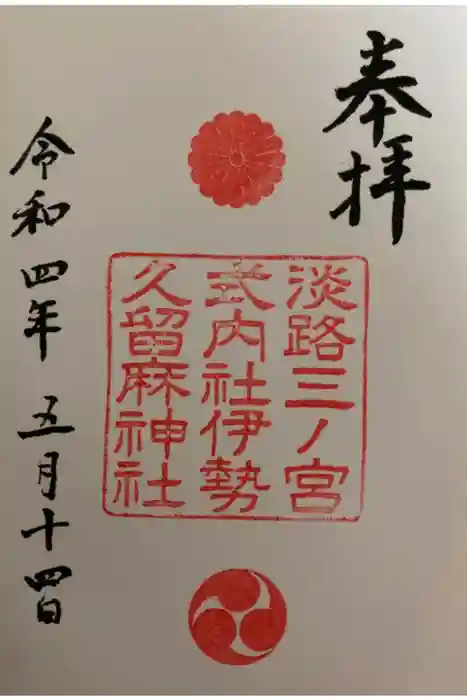 奉拝
淡路三ノ宮
式内社伊勢
久留麻神社
令和四年五月十四日